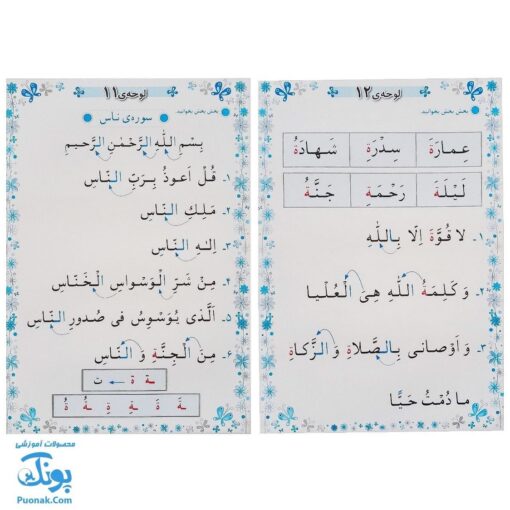 لوحه‌ی ۱۲
بخش بخش بخوانید
عِمارَةَ سِدْرَةِ شَهادَةُ
لَيْلَةَ رَحْمَةِ جَنَّةُ
۱ـ لا قُوَّةَ اِلّا بِاللّٰهِ
۲ـ وَ كَلِمَةُ اللّٰهِ هِیَ الْعُلْیا
۳ـ وَ اَوْصانی بِالصَّلاةِ وَ الزَّكاةِ
ما دُمْتُ حَيًّا
لوحه‌ی ۱۱
بخش بخش بخوانید
سوره‌ی ناس
بِسْمِ اللّٰهِ الرَّحْمٰنِ الرَّحیمِ
۱ـ قُلْ اَعوذُ بِرَبِّ النّاسِ
۲ـ مَلِكِ النّاسِ
۳ـ اِلٰهِ النّاسِ
۴ـ مِنْ شَرِّ الْوَسْواسِ الْخَنّاسِ
۵ـ اَلَّذی يُوَسْوِسُ فی صُدورِ النّاسِ
۶ـ مِنَ الْجِنَّةِ وَ النّاسِ
ـة ة ← ت
ـةَ ةَ ـةِ ةِ ـةُ ةُ
محصولات آموزشی
پونک
Puonak.Com